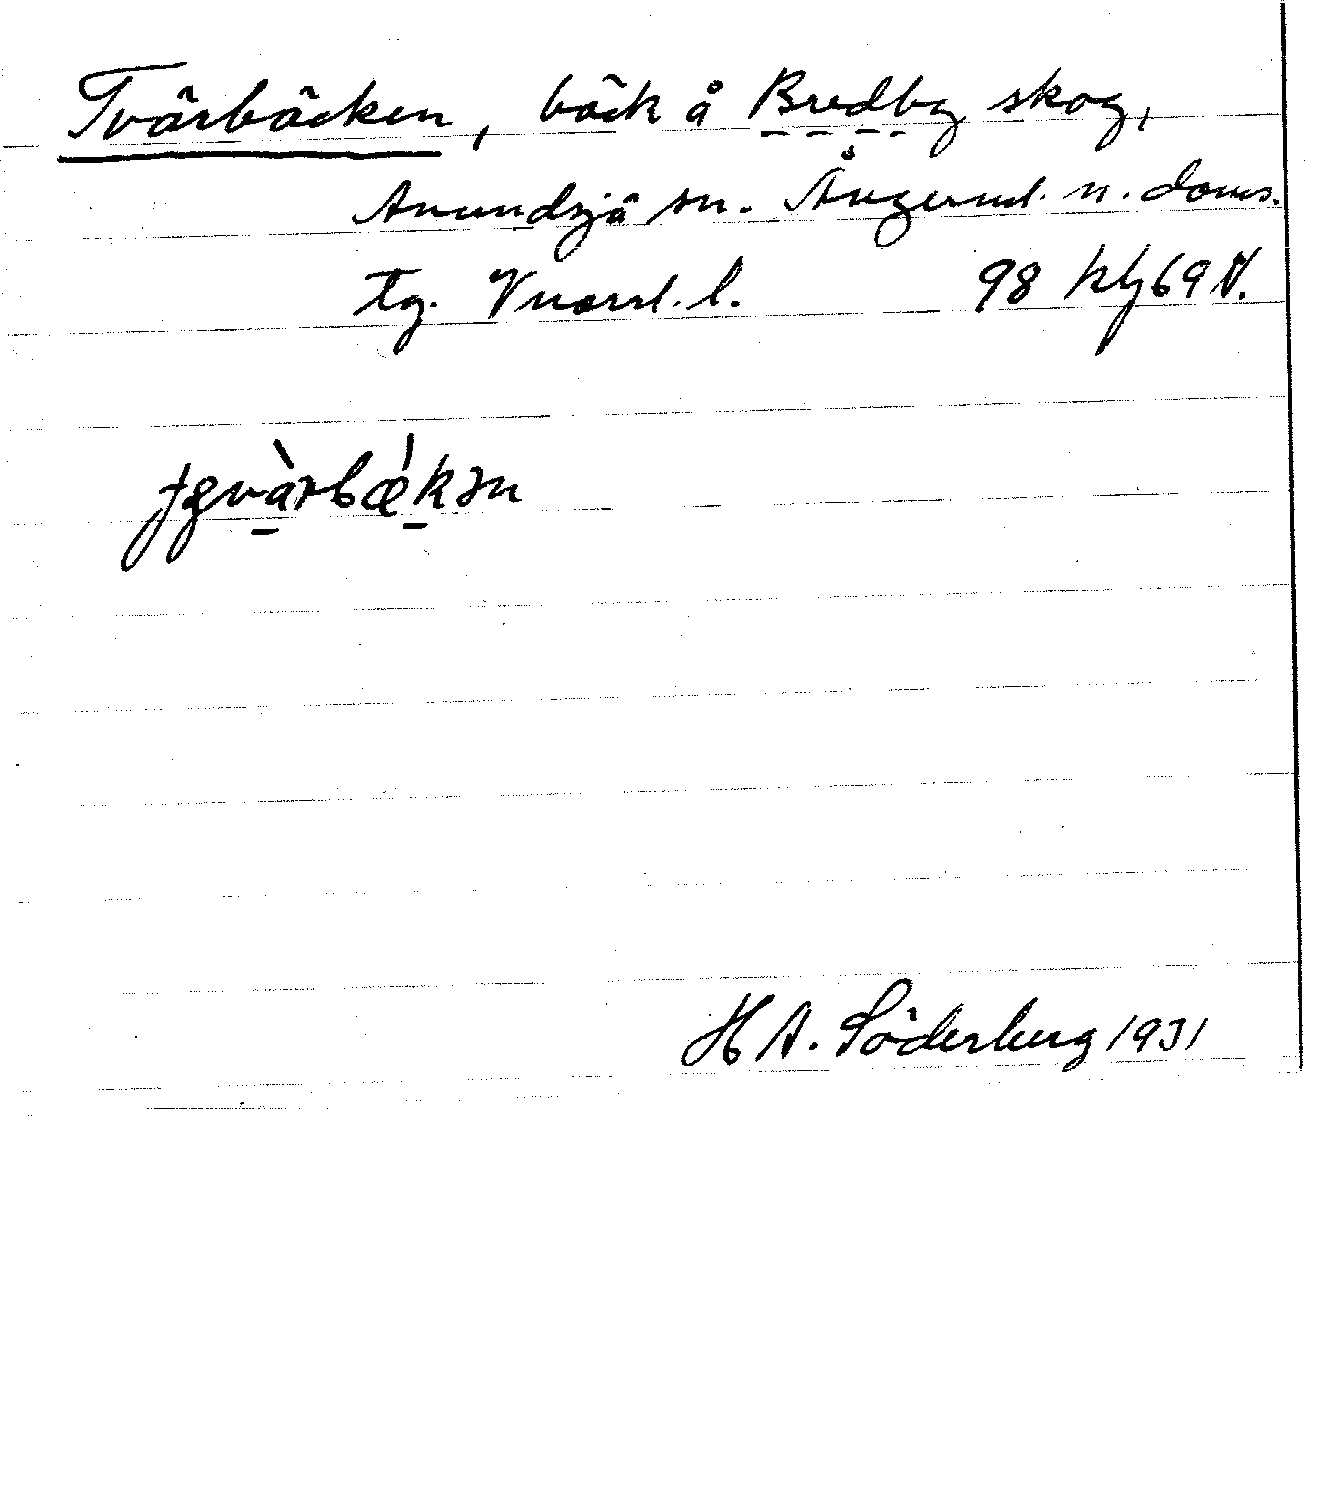 Tvärbäcken, bäck å Bredby skog,
Anundsjö sn. Ångerml. n. doms.
tg. Vnorrl. l. 98 Hh69V.
H A. Söderberg 1931